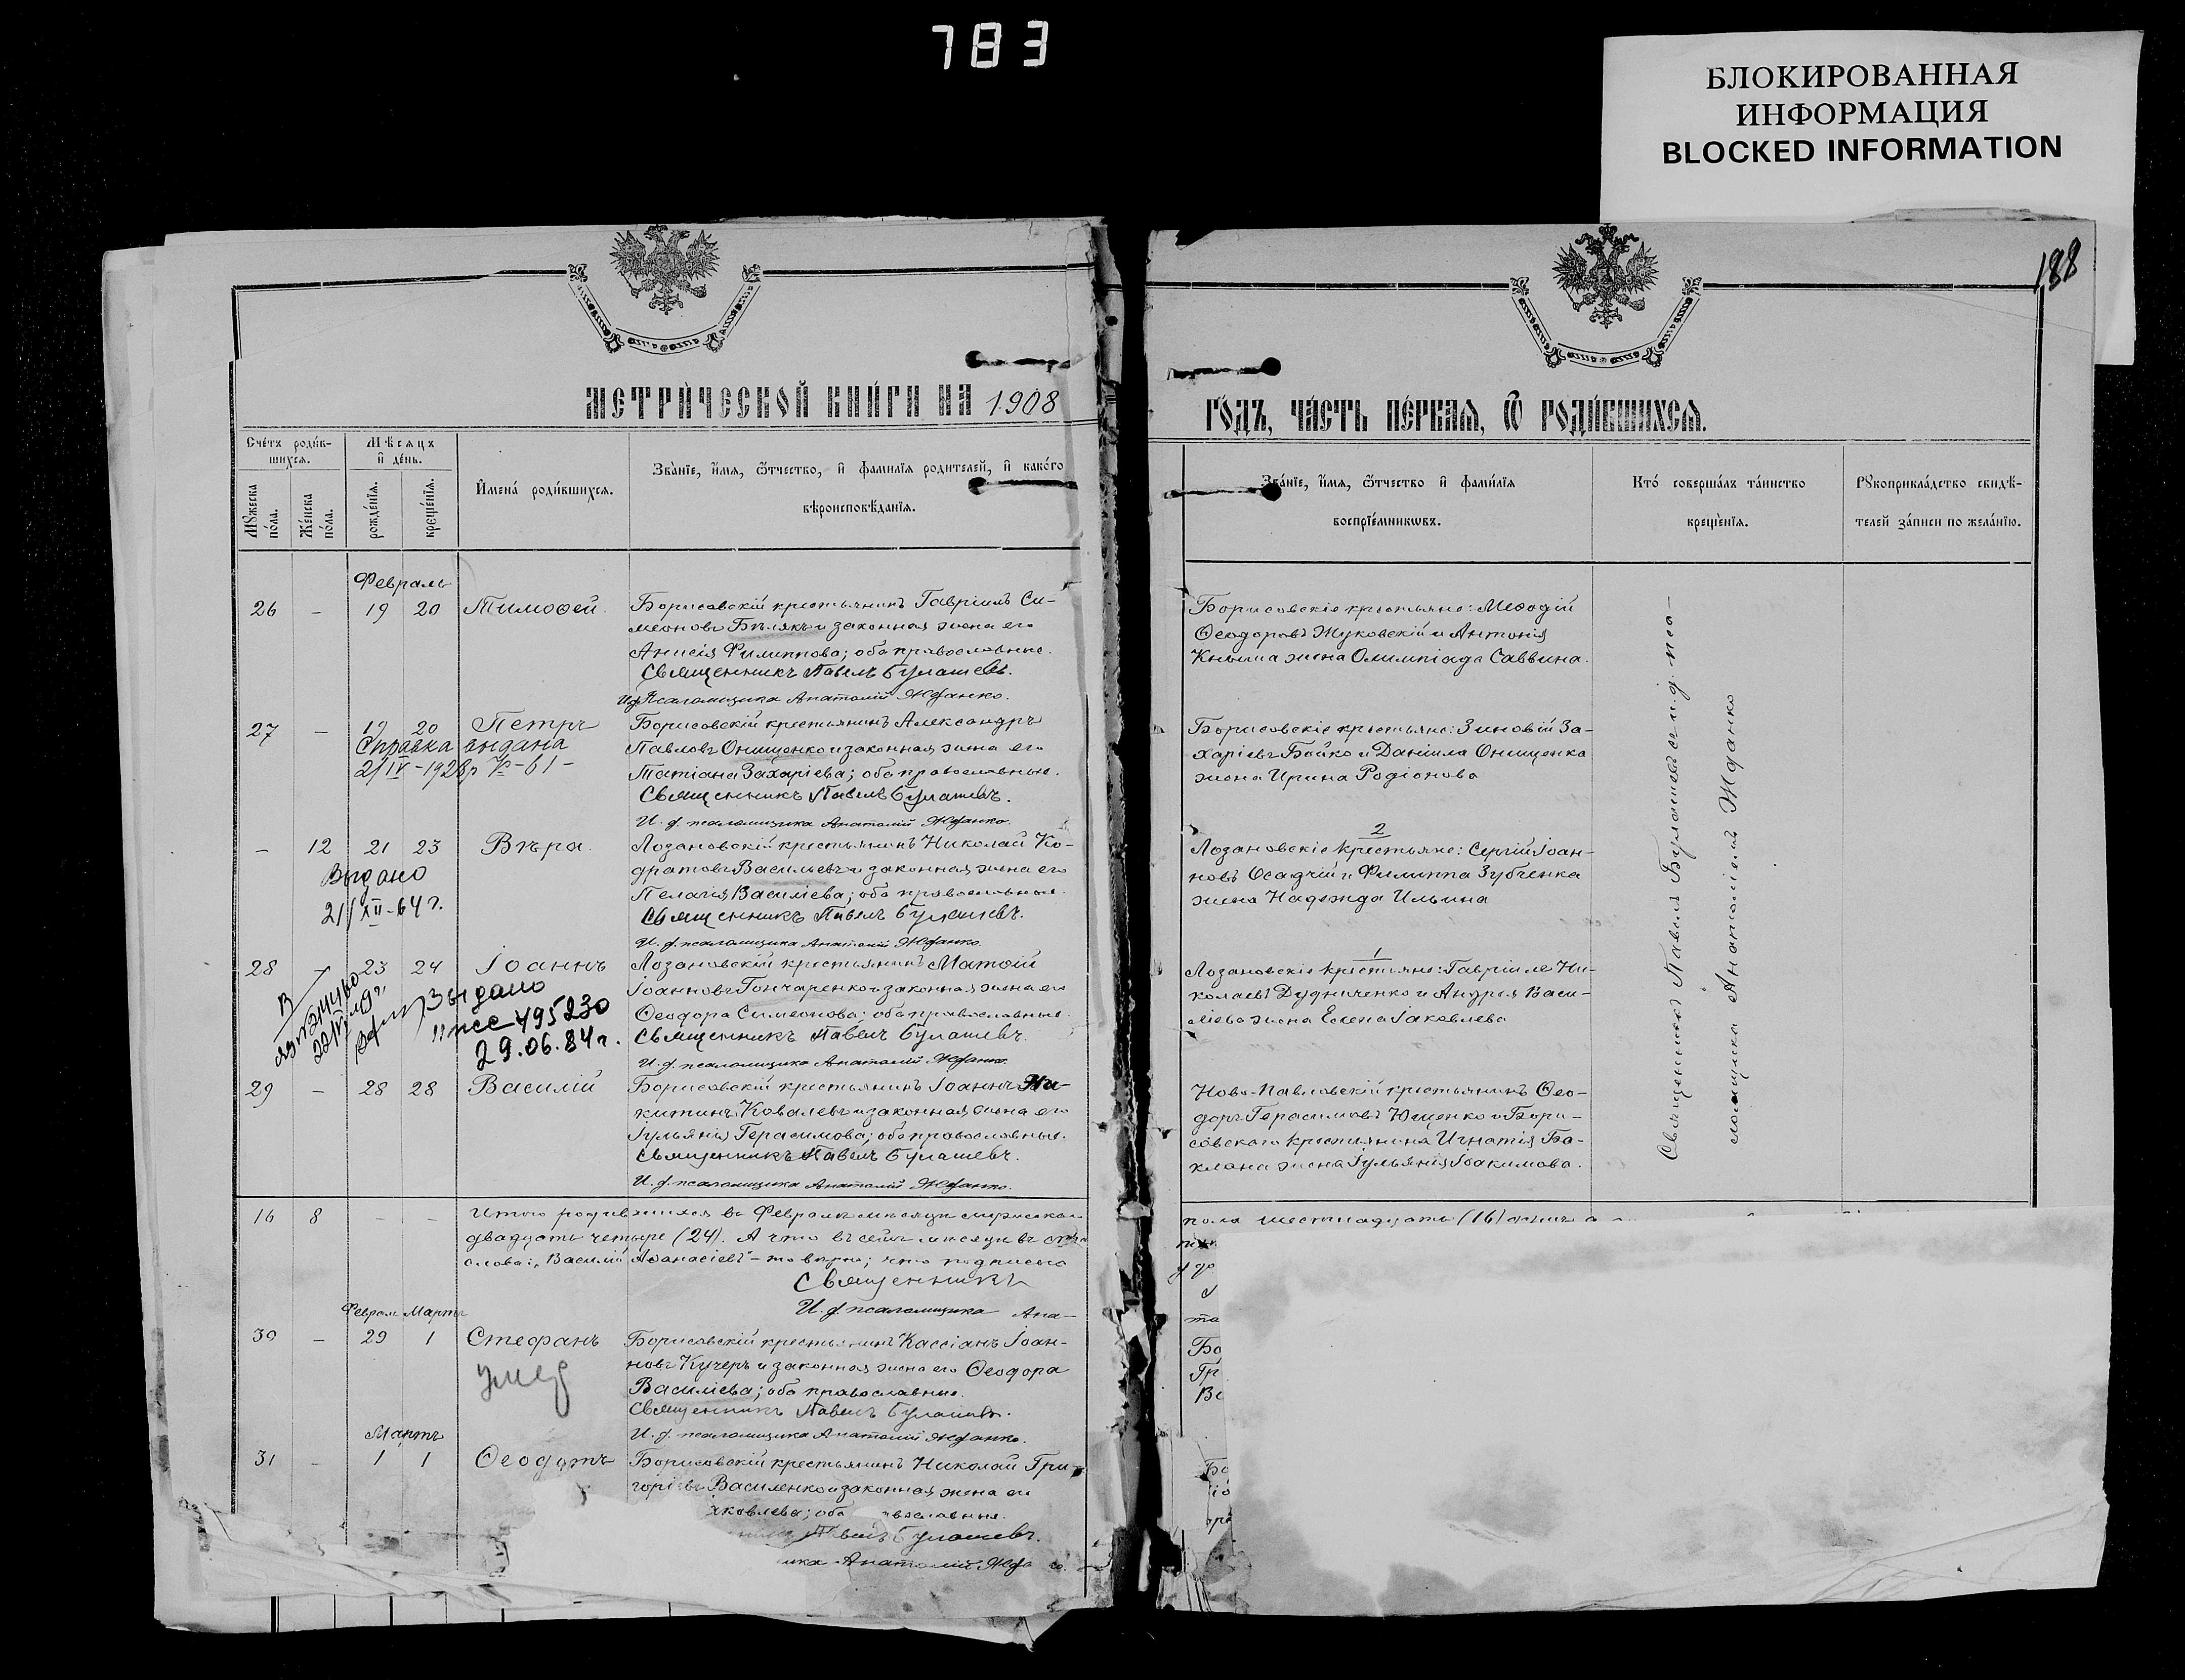 783
БЛОКИРОВАННАЯ
ИНФОРМАЦИЯ
BLOCKED INFORMATION
188
МЕТРИ́ЧЕСКОЙ КНИ́ГИ НА 1908
ГО́ДЪ, ЧА́СТЬ ПЕ́РВАЯ, Ѿ РОДИ́ВШИХСЯ.
Сче́тъ роди́в-
шихся.
Мѣсяцъ
и де́нь.
Мꙋжеска
по́ла.
Же́нска
по́ла.
рожде́нїя.
креще́нїя.
Имена́ роди́вшихся.
Зва́нїе, и́мя, ѻ́тчество, и фамилїя родителей, и како́го
вѣроисповѣ́данїя.
Зва́нїе, и́мя, ѻ́тчество и фами́лїя
воспрїе́мникѡвъ.
Кто́ соверша́лъ та́инство
креще́нїя.
Рꙋкоприкла́дство свидѣ́-
телей за́писи по жела́нїю.
Февраль
26 – 19 20 Тимоѳей
Борисовскій крестьянинъ Гавріилъ Си-
меоновъ Бѣлякъ и законная жена его
Анисія Филиппова; оба православные.
Священникъ Павелъ Булашевъ.
И. д. Псаломщика Анатолій Жданко.
Борисовскіе крестьяне: Меѳодій
Ѳеодоровъ Жуковскій и Антонія
Кныша жена Олимпіада Саввина.
27 – 19 20 Петръ
Справка выдана
21/IV-1928г № -61-
Борисовскій крестьянинъ Александръ
Павловъ Онищенко и законная жена его
Татіана Захаріева; оба православные.
Священникъ Павелъ Булашевъ.
И. д. псаломщика Анатолій Жданко.
Борисовскіе крестьяне: Зиновій За-
харіевъ Бойко и Даніила Онищенка
жена Ирина Родіонова
– 12 21 23 Вѣра.
Выдано
21/XII-64 г.
Лозановскій крестьянинъ Николай Ко-
дратовъ Васильевъ и законная жена его
Пелагія Василіева; оба православные.
Священникъ Павелъ Булашевъ.
И. д. псаломщика Анатолій Жданко.
2
Лозановскіе крестьяне: Сергій Іоан-
новъ Осадчій и Филиппа Зубченка
жена Надежда Ильина
28 – 23 24 Іоаннъ
Выдано
495230
29.06.84 г.
Лозановскій крестьянинъ Матѳій
Іоанновъ Гончаренко и законная жена его
Ѳеодора Симеонова; оба православные.
Священникъ Павелъ Булашевъ.
И. д. псаломщика Анатолій Жданко.
1
Лозановскіе крестьяне: Гавріилъ Ни-
колаевъ Дудниченко и Андрея Васи-
ліева жена Елена Іаковлева
29 – 28 28 Василій
Борисовскій крестьянинъ Іоаннъ Ни-
китинъ Ковалевъ и законная жена его
Іульянія Герасимова; оба православные.
Священникъ Павелъ Булашевъ.
И. д. псаломщика Анатолій Жданко.
Ново-Павловскій крестьянинъ Ѳео-
доръ Герасимовъ Ющенко и Бори-
совскаго крестьянина Игнатія Ба-
клана жена Іульянія Іоакимова.
Священникъ Павелъ Булашевъ и и. д. пса-
ломщика Анатолій Жданко
16 8 – – Итого родившихся въ Февралѣ мѣсяцѣ мужеска
пола шестнадцать (16)
двадцать четыре (24). А что въ семъ мѣсяцѣ въ
слова: „Василій Аѳанасіевъ" – то вѣрно; что подписью
Священникъ
И. д. псаломщика Ана-
Феврал Мартъ
30 – 29 1 Стефанъ
умер
Борисовскій крестьянинъ Кассіанъ Іоан-
новъ Кучеръ и законная жена его Ѳеодора
Василіева; оба православные.
Священникъ Павелъ Булашевъ.
И. д. псаломщика Анатолій Жданко.
Бо
Гр
Ва
Мартъ
31 – 1 1 Ѳеодотъ
Борисовскій крестьянинъ Николай Гри-
горіевъ Василенко и законная жена его
яковлева; оба православные.
Павелъ Булашевъ.
ика Анатолій Жда